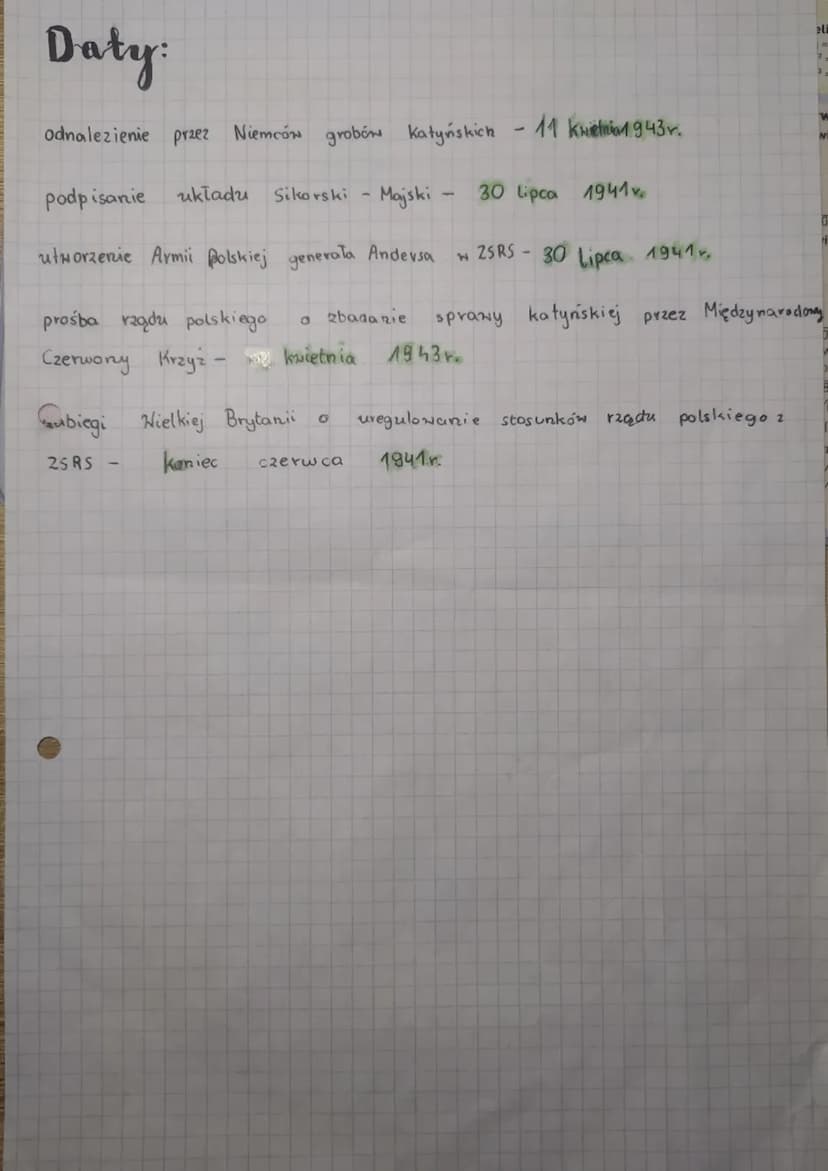 Daty:
odnalezienie przez Niemców grobów Katyńskich - 11 kwietnia 1943r.
podpisanie układu Sikorski - Majski - 30 lipca 1941r.
utworzenie Armii Polskiej generała Andersa w ZSRS - 30 lipca 1941r.
prośba rządu polskiego o zbadanie sprawy katyńskiej przez Międzynarodowy
Czerwony Krzyż - kwietnia 1943r.
zabiegi Wielkiej Brytanii o uregulowanie stosunków rządu polskiego z
ZSRS - koniec czerwca 1941r.